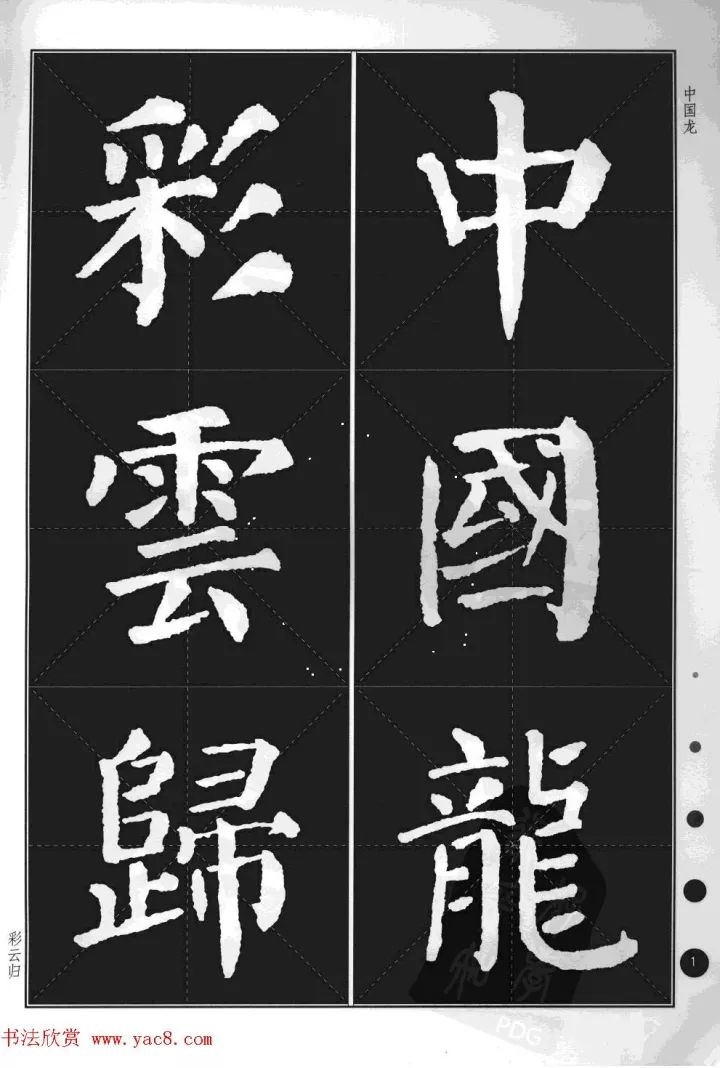 中國龍
彩雲歸
中国龙
彩云归
1
PDG
书法欣赏 www.yac8.com